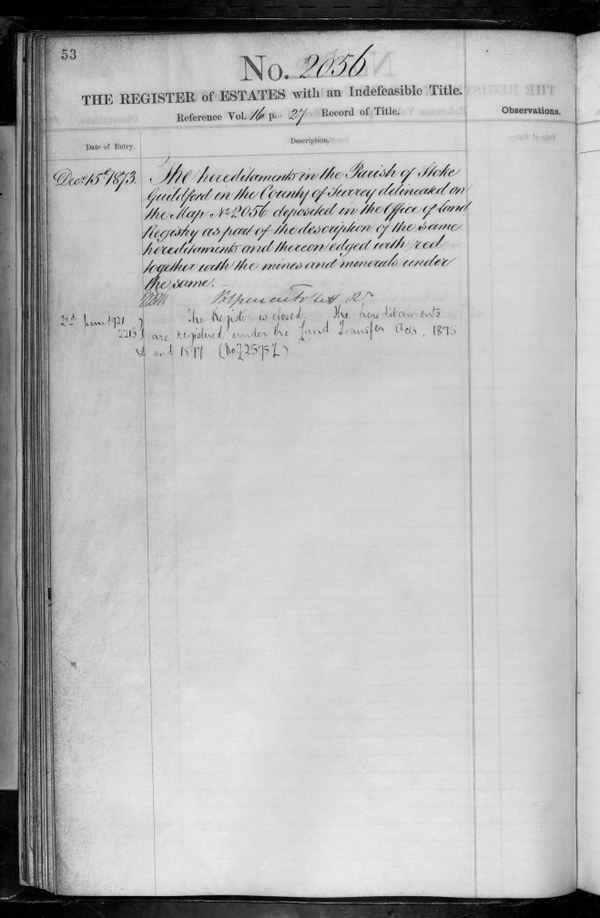 53
No. 2056
THE REGISTER of ESTATES with an Indefeasible Title.
Reference Vol. 16 p. 27 Record of Title.
Observations.
Date of Entry.
Description.
Decr 15th 1873.
The hereditaments in the Parish of Stoke
Guildford in the County of Surrey delineated on
the Map No 2056 deposited in the Office of Land
Registry as part of the description of the same
hereditaments and thereon edged with red
together with the mines and minerals under
the same.
2nd June 1921
The Register is closed. The hereditaments
2213 are registered under the Land Transfer Acts, 1875
and 1897